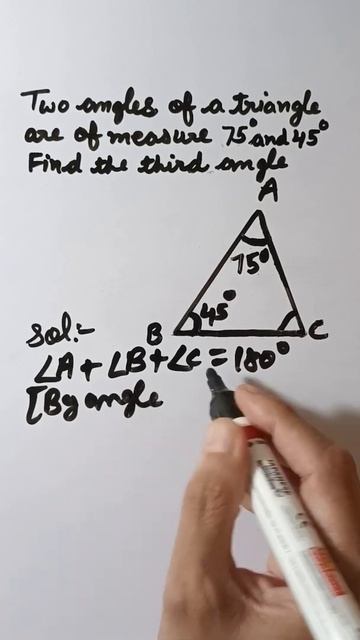 Two angles of a triangle
are of measure 75° and 45°
Find the third angle
A
75°
45°
B
C
Sol:-
∠A + ∠B + ∠C = 180°
[By angle